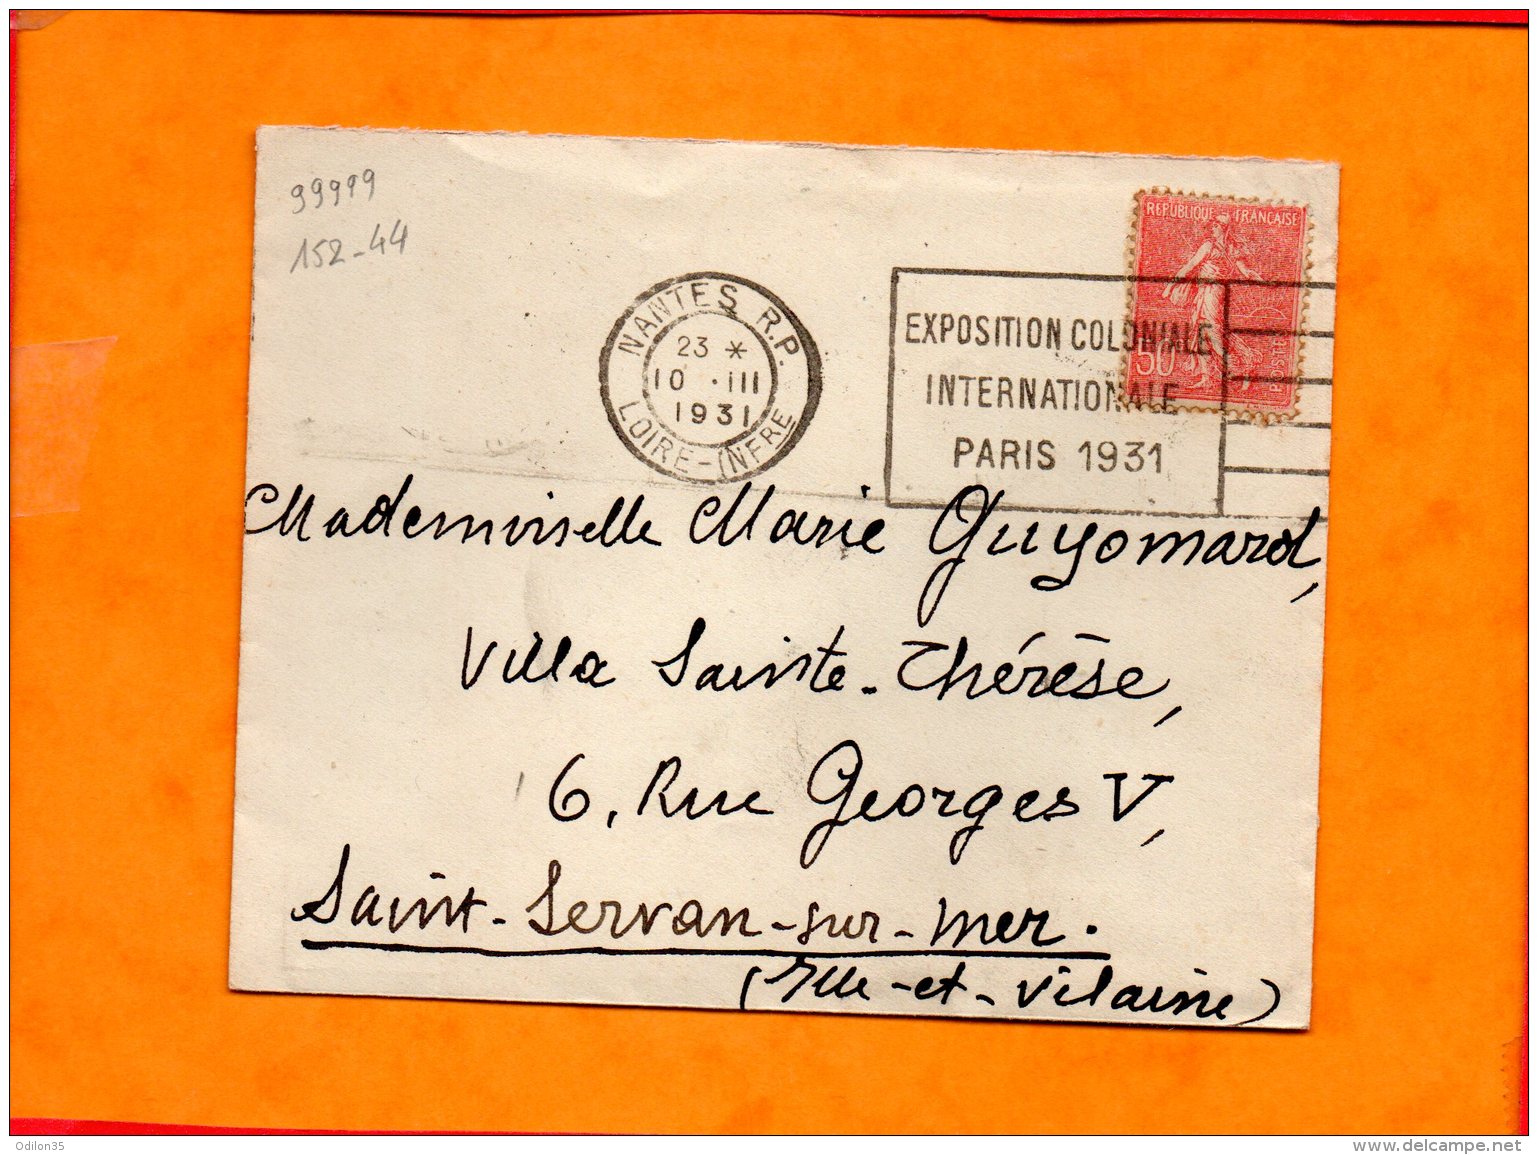 99999
152-44
NANTES R.P.
23 *
10 . III
1931
LOIRE-INFRE
REPUBLIQUE FRANÇAISE
50
POSTES
EXPOSITION COLONIALE
INTERNATIONALE
PARIS 1931
Mademoiselle Marie Guyomard,
Villa Sainte-Thérèse,
6, Rue Georges V,
Saint-Servan-sur-mer.
(Ille-et-Vilaine)
Odilon35
delcampe.net